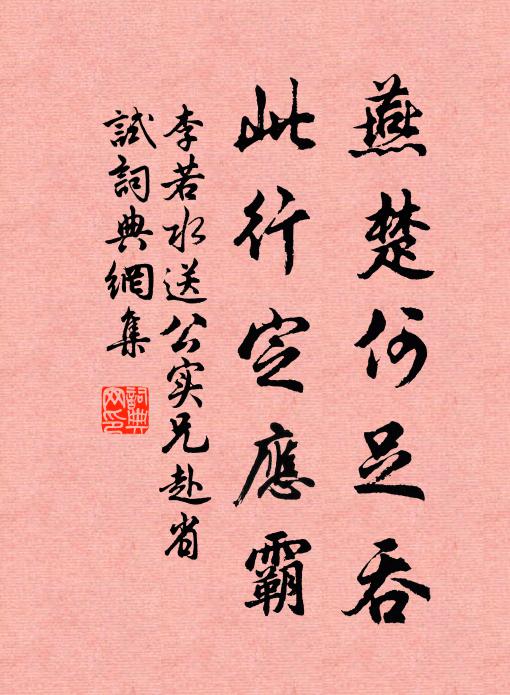 燕楚何足吞
此行定應霸
李若水送公实兄赴省
試詞典網集
詞典
网印